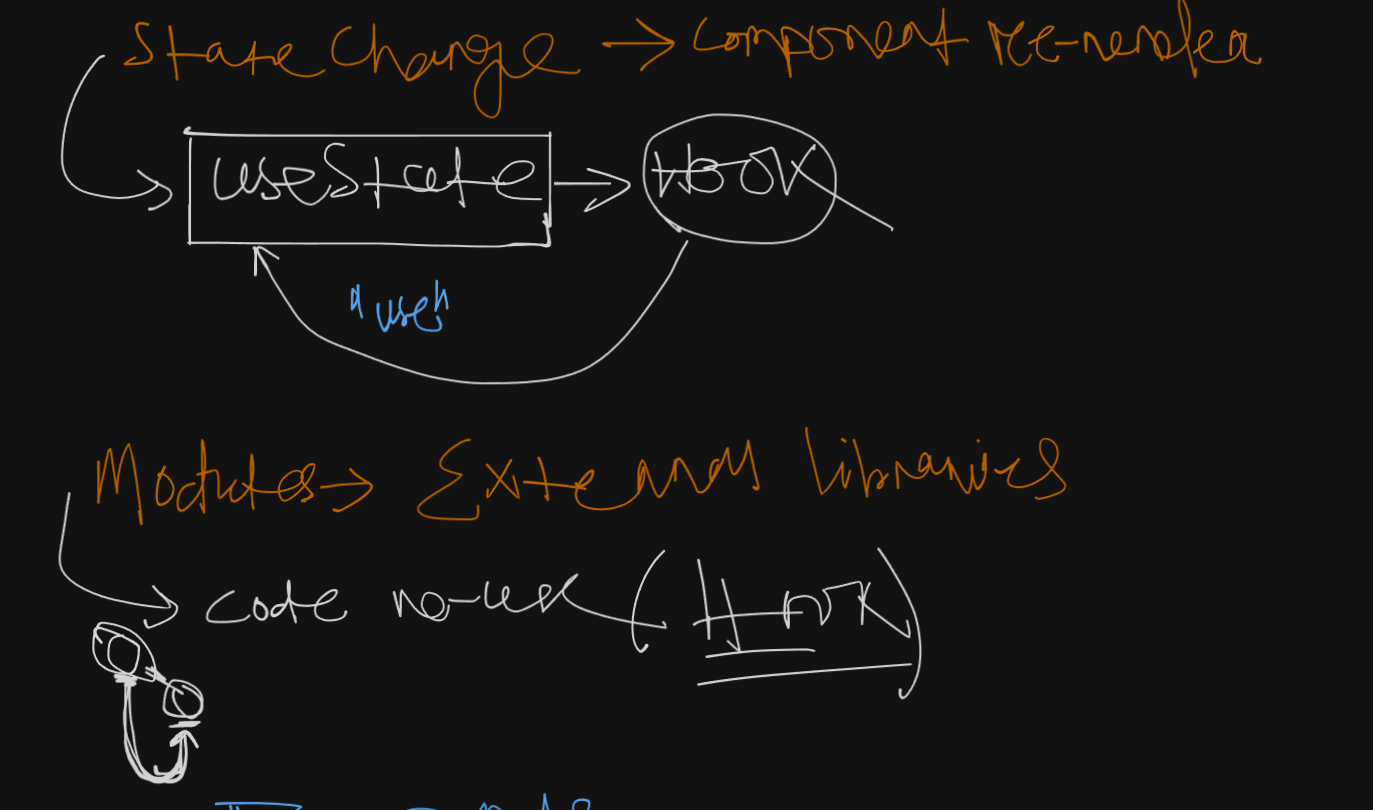 State Change → Component re-render
useState → Hook
"use"
Modules → External libraries
code re-use (Hook)